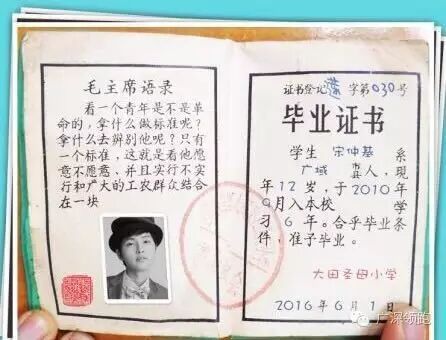 毛主席语录
看一个青年是不是革
命的，拿什么做标准呢？
拿什么去辨别他呢？只有
一个标准，这就是看他愿
意不愿意、并且实行不实
行和广大的工农群众结合
在一块
证书登记 字第030号
毕业证书
学生 宋仲基 系
广域 县人，现
年12岁，于2010年
9月入本校 学
习6年。合乎毕业条
件，准予毕业。
大田圣母小学
2016年6月1日
广深领跑